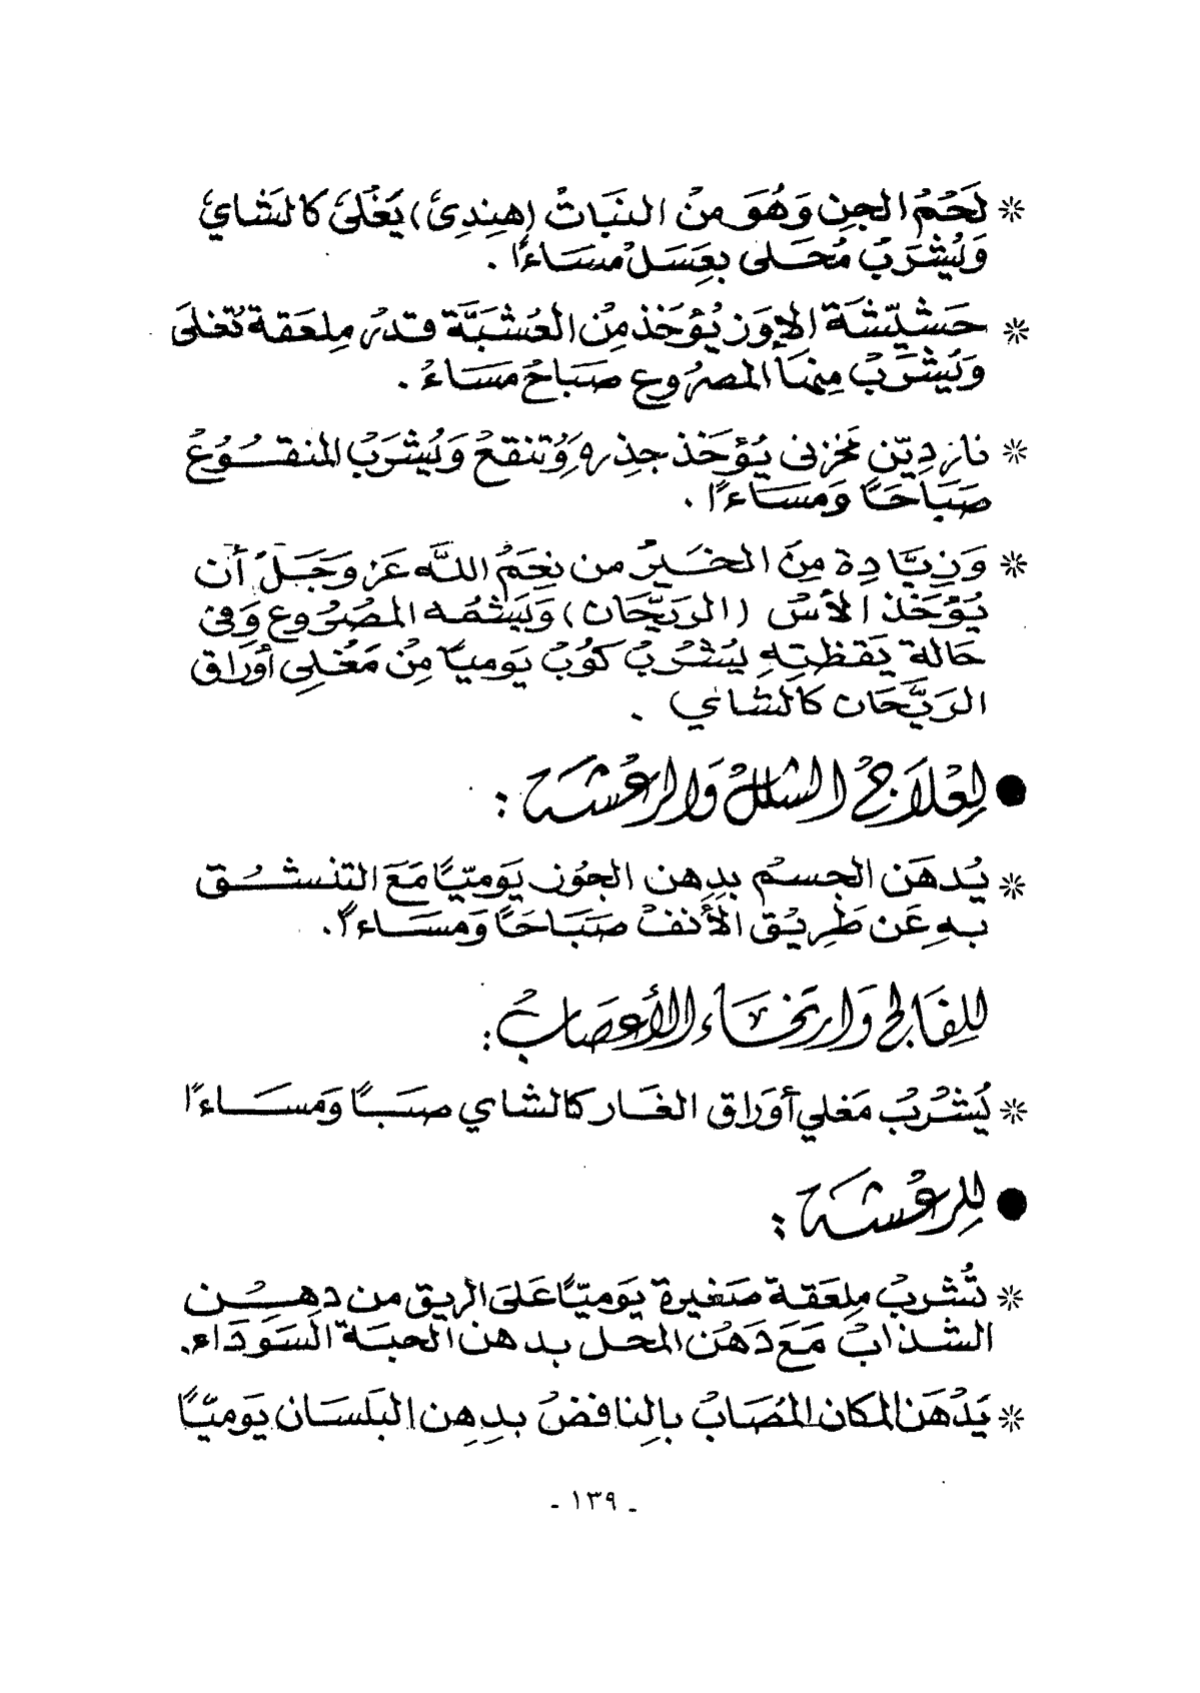 * لَحْمُ الجِن وَهُوَ مِنْ النبَاتْ (هِنِدِىّ) يَغْلَىَ كالشَايَّ
وَيُشْرَبْ مُحَلى بعِسَلْ مسَاءًا .
* حَشيّشَة الإوَز يُؤخَذ مِنْ العُشبَّة قدْر مِلعَقة تُغلىَ
وَيُشْرَبْ مِنهَا المصرُوع صَبَاحْ مسَاءْ .
* ناردِيّن مَخزنى يُؤخَذ جِذره وَتُنقعْ وَيُشْرَبْ المنقُوُعْ
صَبَاحًا وَمسَاءًا .
* وَزِيَّادِة مِنَ الخَيرْ من نِعَمُ اللَّه عَز وَجَلْ أن
يُؤخَذ الأسْ (الرَيّحَان) وَيَشمُه المصُرُوع وَفىْ
حَالة يَقظتِهِ يُشْرَبْ كوُبْ يَوميًا مِنْ مَغْلِى أوْرَاق
الرَيَّحَان كالشاي .
● لِعْلَاجْ الشللْ وَالرعْشَة :
* يُدهَن الجِسمْ بدِهن الجوُز يَوميّبًا مَعَ التنشُق
بهِ عَن طَرِيْق الأنفْ صَبَاحًا وَمسَاءًا .
للِفَالِج وَارتخَاء الأعصَابْ :
* يُشْرَبْ مَغلي أوَراق الغَار كالشاي صبَبًا وَمسَاءًا
● للِرعْشَة :
* تُشربْ مِلعَقة صَغيرة يَوميّبًا عَلىَ الريق من دهِنْ
الشذابْ مَعَ دَهنْ المحل بدهن الحبَة السَودَاء.
* يَدْهَن المكان المُصَابْ بالِنافضْ بدِهِن البَلسَان يَوميّبًا
- ١٣٩ -